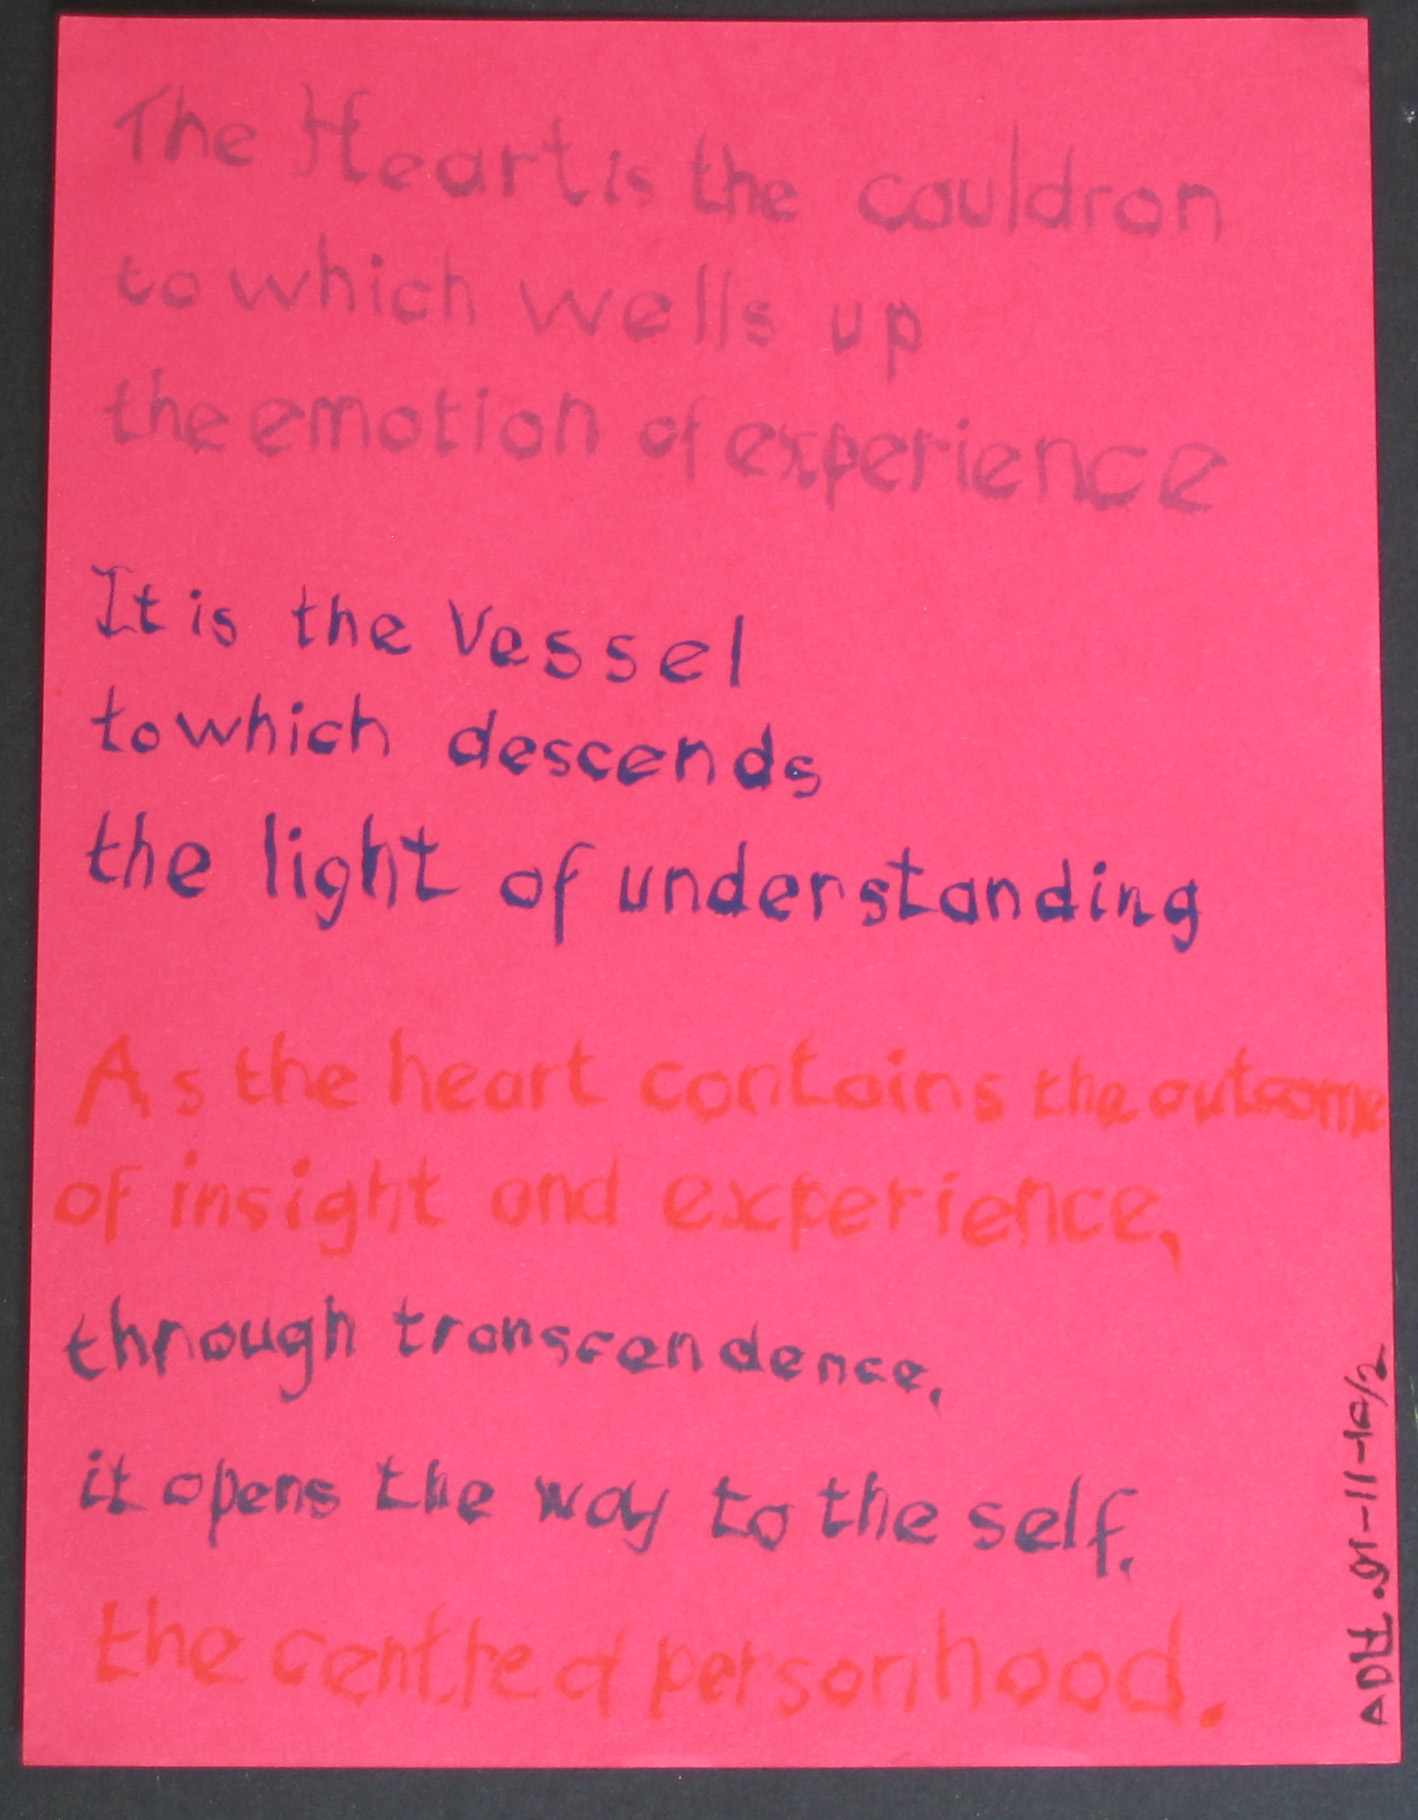 The Heart is the cauldron
to which wells up
the emotion of experience
It is the Vessel
to which descends
the light of understanding
As the heart contains the outcome
of insight and experience,
through transcendence,
it opens the way to the self.
the centre of personhood.
ADH.91-11-10/2